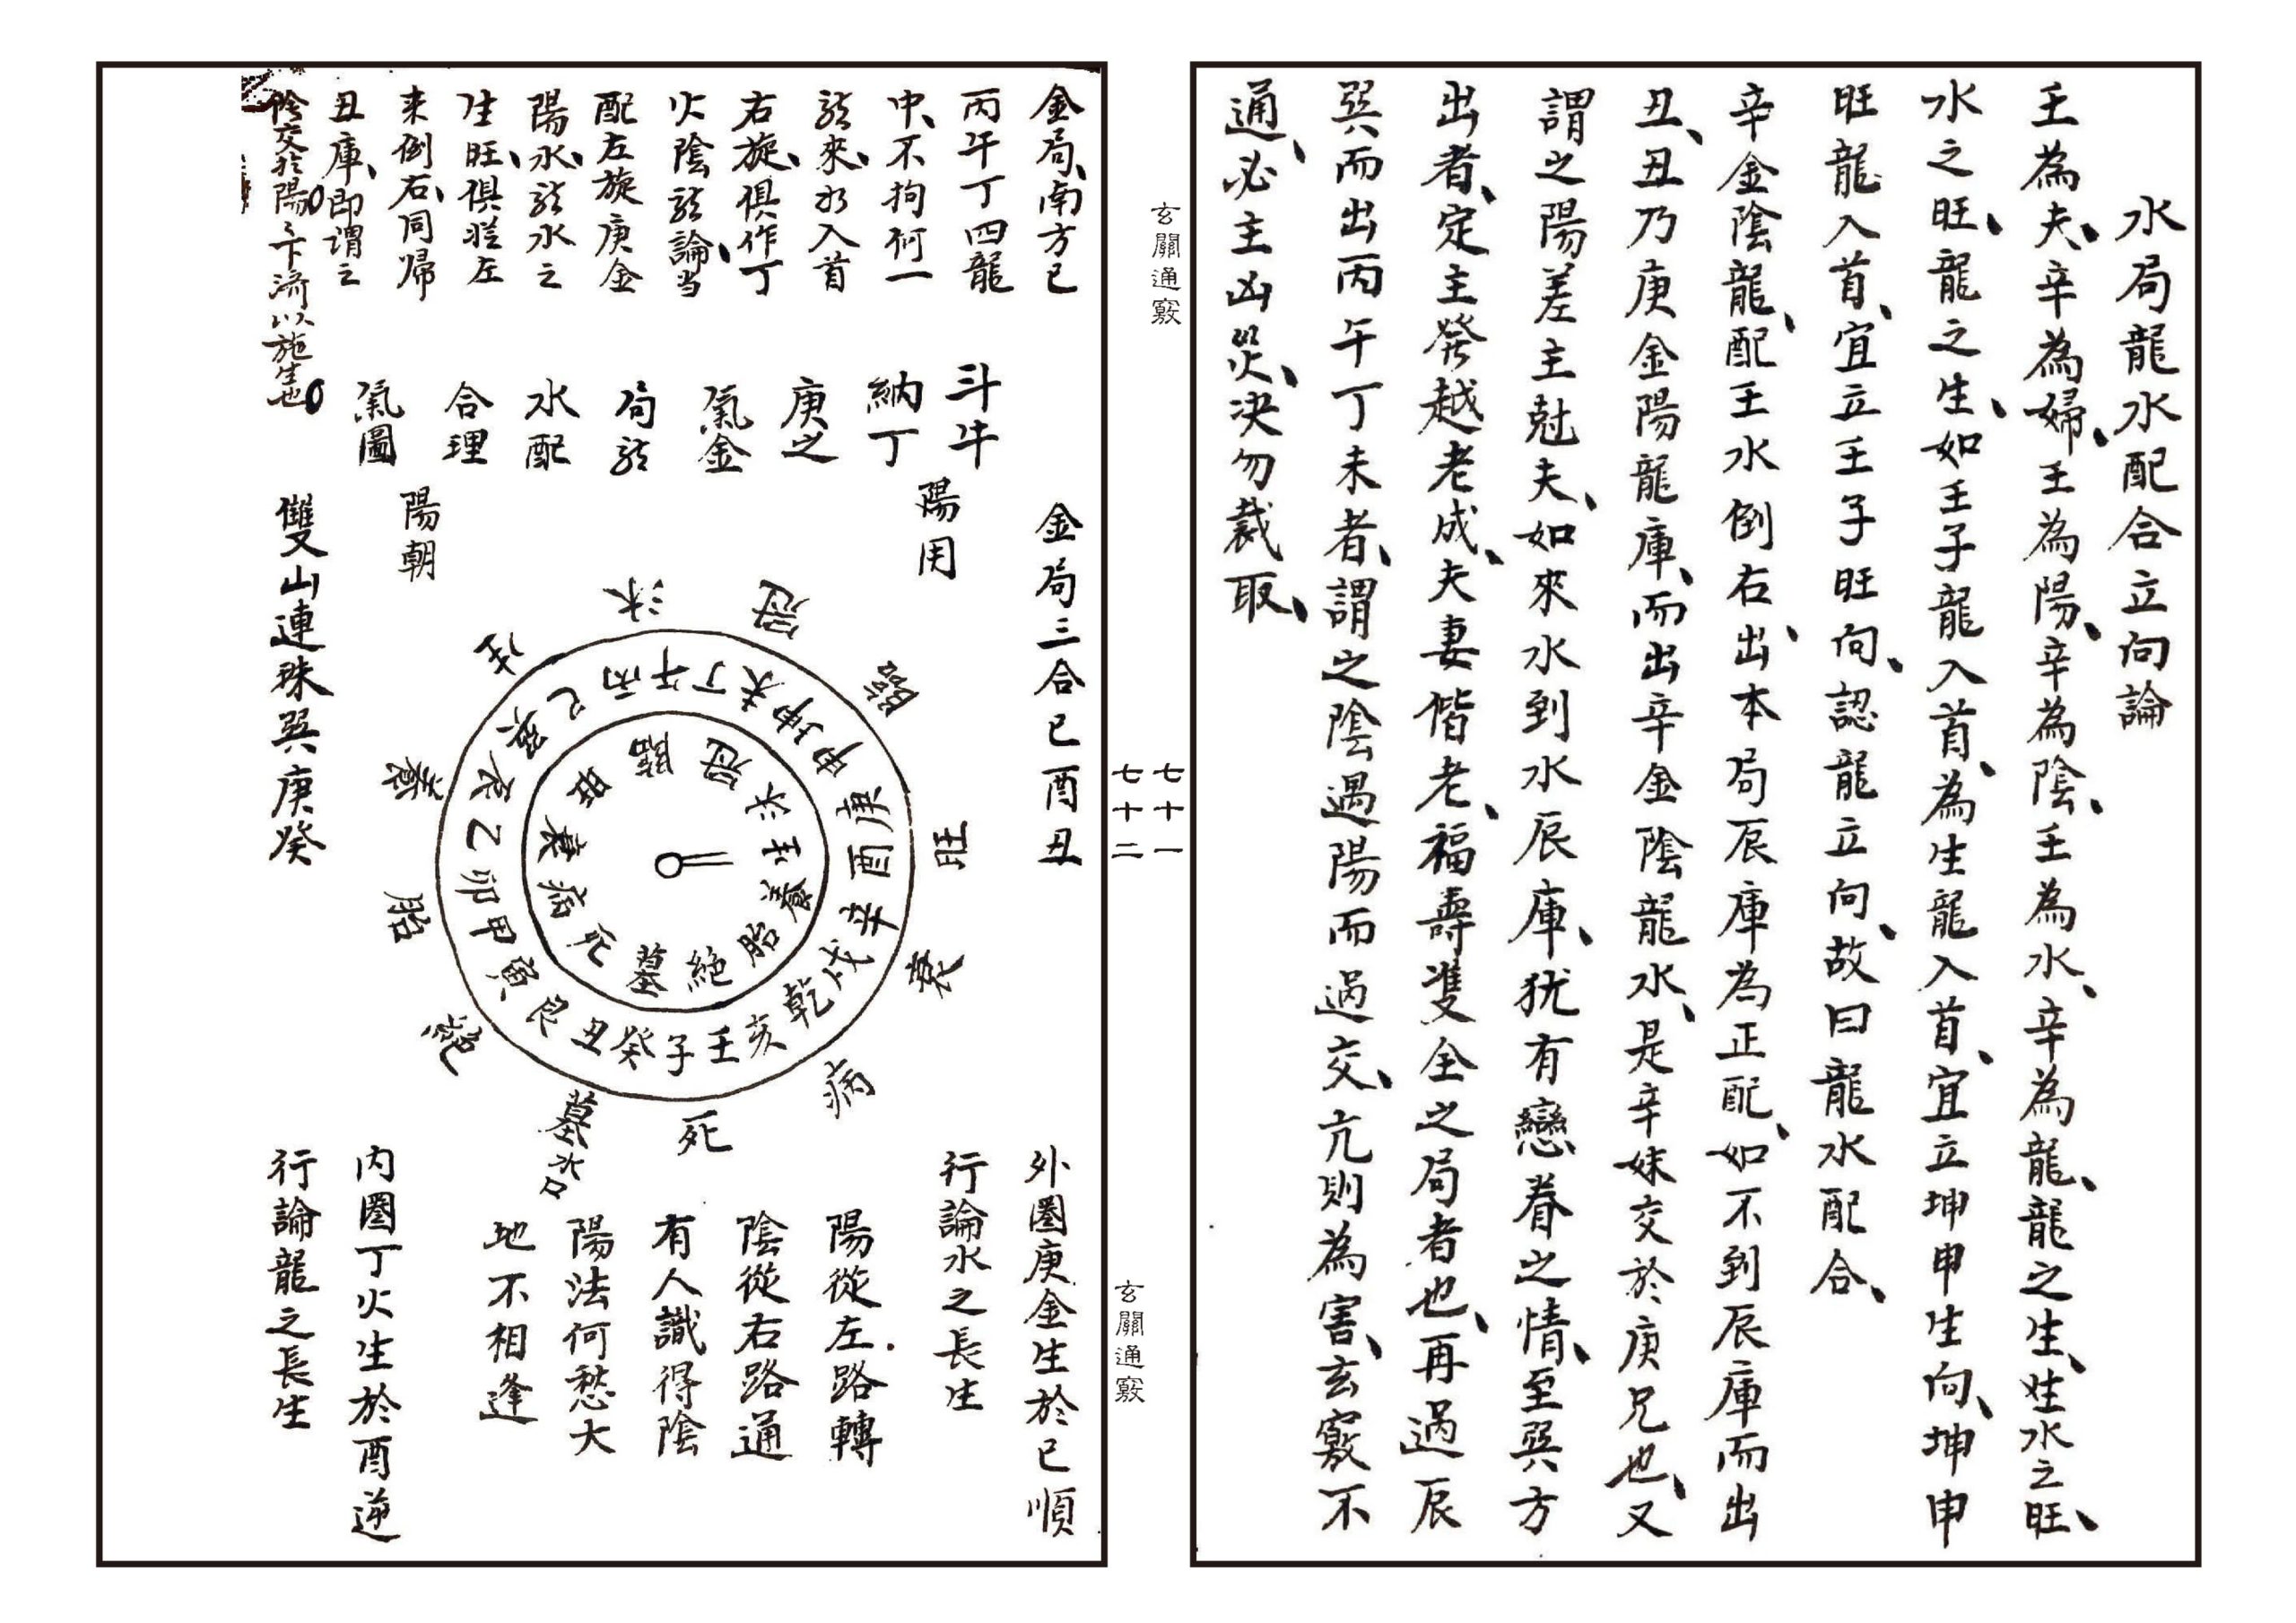 水局龍水配合立向論
壬為夫、辛為婦、壬為陽、辛為陰、壬為水、辛為龍、龍之生、生水之旺、
水之旺、龍之生、如壬子龍入首、為生龍入首、宜立坤申生向、坤申
旺龍入首、宜立壬子旺向、認龍立向、故曰龍水配合、
辛金陰龍、配壬水倒右、出本局辰庫為正配、如不到辰庫而出
丑、丑乃庚金陽龍庫、而出辛金陰龍水、是辛妹交於庚兄也、又
謂之陽差主尅夫、如來水到水辰庫、犹有戀眷之情、至巽方
出者、定主發越老成、夫妻偕老、福壽雙全之局者也、再過辰
巽而出丙午丁未者、謂之陰遇陽而過交、亢則為害、玄竅不
通、必主凶災、决勿裁取、
玄關通竅
七十一
七十二
玄關通竅
金局、南方巳
丙午丁四龍
中、不拘何一
龍來、水入首
右旋、俱作丁
火陰龍論、当
配左旋庚金
陽水、龍水之
生旺、俱從左
来倒右、同帰
丑庫、即謂之
陰交於陽、下济以施生也
斗牛
納丁
庚之
氣金
局龍
水配
合理
氣圖
金局三合巳酉丑
陽用
陽朝
雙山連珠巽庚癸
冠
沐
生
養
胎
絕
墓
死
病
衰
旺
臨
丙午丁未坤申庚酉辛戌乾亥壬子癸丑艮寅甲卯乙辰巽巳
臨冠沐生養胎絕墓死病衰旺
外圈庚金生於巳順
行論水之長生
陽從左路轉
陰從右路通
有人識得陰
陽法何愁大
地不相逢
内圈丁火生於酉逆
行論龍之長生